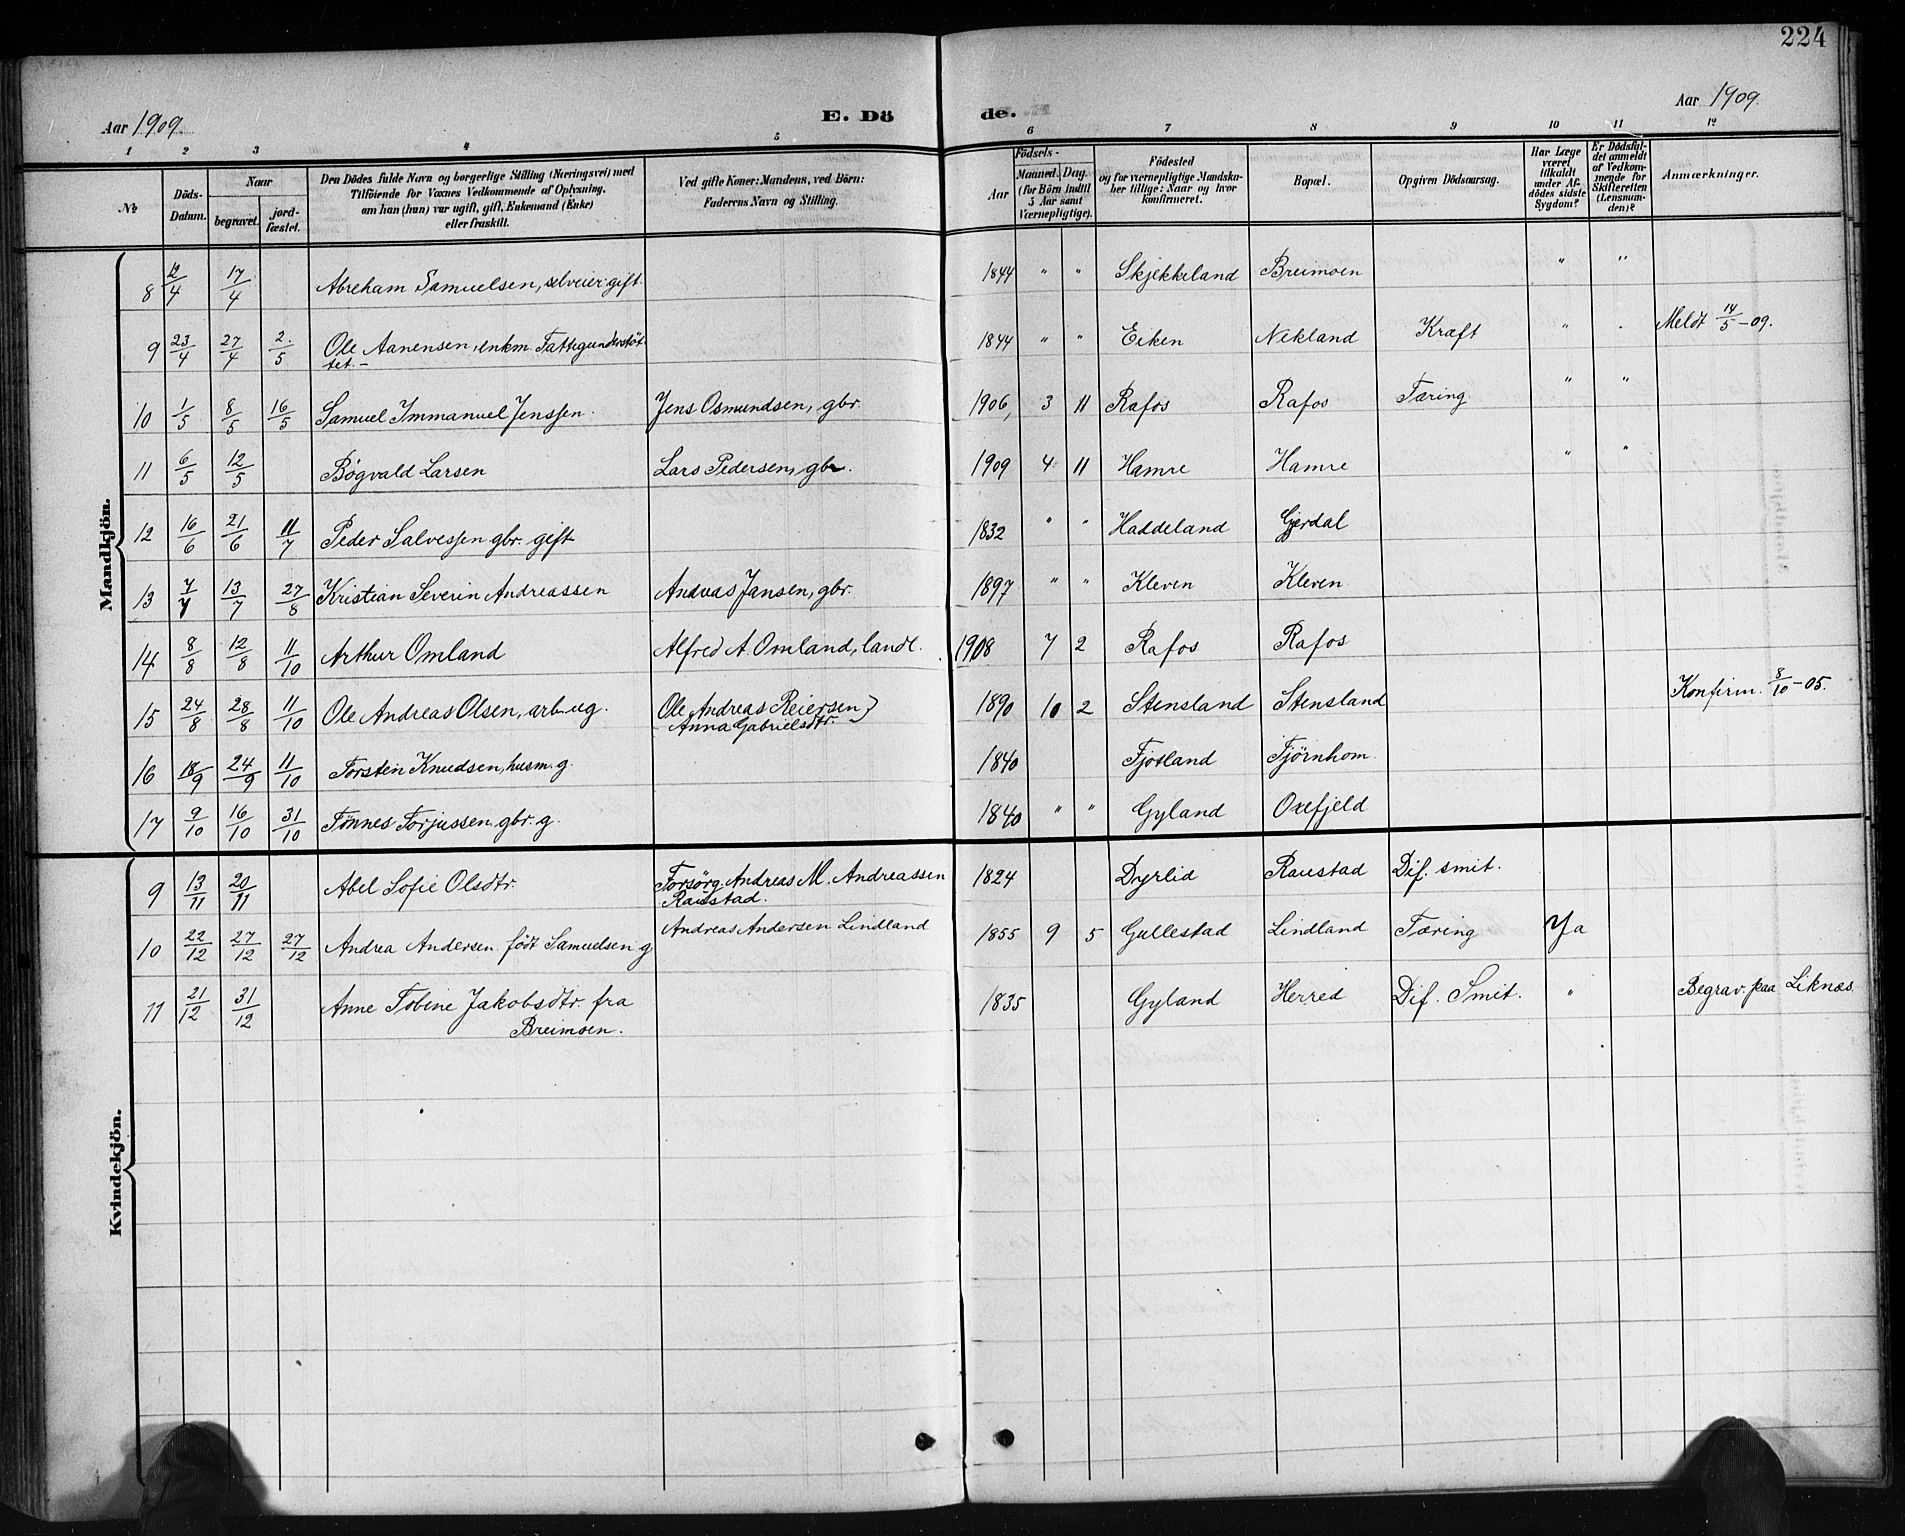 224
Aar 1909.
E. Dö
de.
Aar 1909.
1 2 3 4 5 6 7 8 9 10 11 12
№
Döds-Datum.
Naar
begravet.
jord-fæstet.
Den Dödes fulde Navn og borgerlige Stilling (Næringsvei) med
Tilföiende for Voxnes Vedkommende af Oplysning,
om han (hun) var ugift, gift, Enkemand (Enke)
eller fraskilt.
Ved gifte Koner: Mandens, ved Börn:
Faderens Navn og Stilling.
Födsels-
Aar
Maaned. Dag.
(for Börn indtil
5 Aar samt
Værnepligtige).
Födested
og for værnepligtige Mandska-
ber tillige: Naar og hvor
konfirmeret.
Bopæl.
Opgiven Dödsaarsag.
Har Læge
været
tilkaldt
under Af-
dödes sidste
Sygdom?
Er Dödsfal-
det anmeldt
af Vedkom-
mende for
Skifteretten
(Lensman-
den)?
Anmærkninger.
Mandkjön.
8 12/4 17/4 Abreham Samuelsen, selveier gift. 1844 " " Skjekkeland Breimoen " "
9 23/4 27/4 2/5 Ole Aanensen, enkm. Fattigunderstöt- 1844 " " Eiken Nekland Kræft " " Meldt 14/5 -09.
tet.-
10 1/5 8/5 16/5 Samuel Immanuel Jenssen. Jens Osmundsen, gbr. 1906, 3 11 Rafos Rafos Tæring " "
11 6/5 12/5 Bögvald Larsen Lars Pedersen, gbr. 1909 4 11 Hamre Hamre " "
12 16/6 21/6 11/7 Peder Salvessen gbr. gift 1832 " " Haddeland Gjerdal
13 7/7 13/7 27/8 Kristian Severin Andreassen Andreas Jansen, gbr. 1897 " " Kleven Kleven
14 8/8 12/8 11/10 Arthur Omland Alfred A. Omland, landl. 1908 7 2 Rafos Rafos
15 24/8 28/8 11/10 Ole Andreas Olsen, arb ug. Ole Andreas Reiersen } 1890 10 2 Stensland Stensland Konfirm. 8/10 -05.
Anna Gabrielsdtr.
16 18/9 24/9 11/10 Torsten Knudsen, husm. g. 1840 Fjotland Tjörnhom
17 9/10 16/10 31/10 Tönnes Torjussen gbr. g. 1840 " " Gyland Oxefjeld
Kvindekjön.
9 13/11 20/11 Abel Sofie Olsdtr. Forsörg. Andreas M. Andreassen 1824 Dyrlid Raustad Dif. smit.
Raustad.
10 22/12 27/12 27/12 Andrea Andersen födt Samuelsen g Andreas Andersen Lindland 1855 9 5 Gullestad Lindland Tæring Ja
11 21/12 31/12 Anne Tobine Jakobsdtr. fra 1835 Gyland Herred Dif. Smit. " Begrav. paa Liknes
Breimoen.